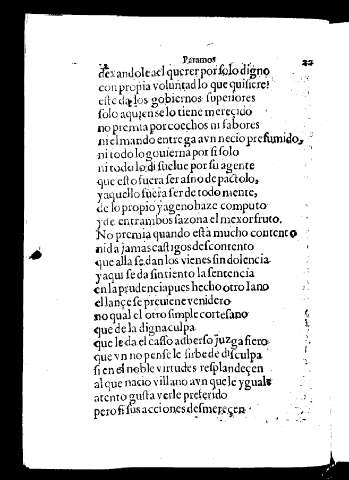 Paramos 22
dexandole a el querer por solo digno
con propia voluntad lo que quisiere!
este da los gobiernos superiores
solo aquien se lo tiene mereçido
no premia por coechos ni fabores
ni el mando entrega a vn necio presumido,
ni todo lo gouierna por si solo
ni todo lo disuelue por su agente
que esto fuera ser asno de pactolo,
y aquello fuera ser de todo mente,
de lo propio y ageno haze computo
y de entrambos sazona el mexor fruto.
No premia quando està mucho contento
ni da jamas castigos descontento
que alla se dan los vienes sin dolencia
y aqui se da sin tiento la sentencia
en la prudencia pues hecho otro Iano
el lançe se preuiene venidero
no qual el otro simple cortesano
que de la digna culpa
que le da el casso adberso juzga fiero
que vn no pense le sirbe de disculpa
si en el noble virtudes resplandeçen
al que nacio villano avn que le yguale
atento gusta verle preferido
pero si sus acciones desmereçen